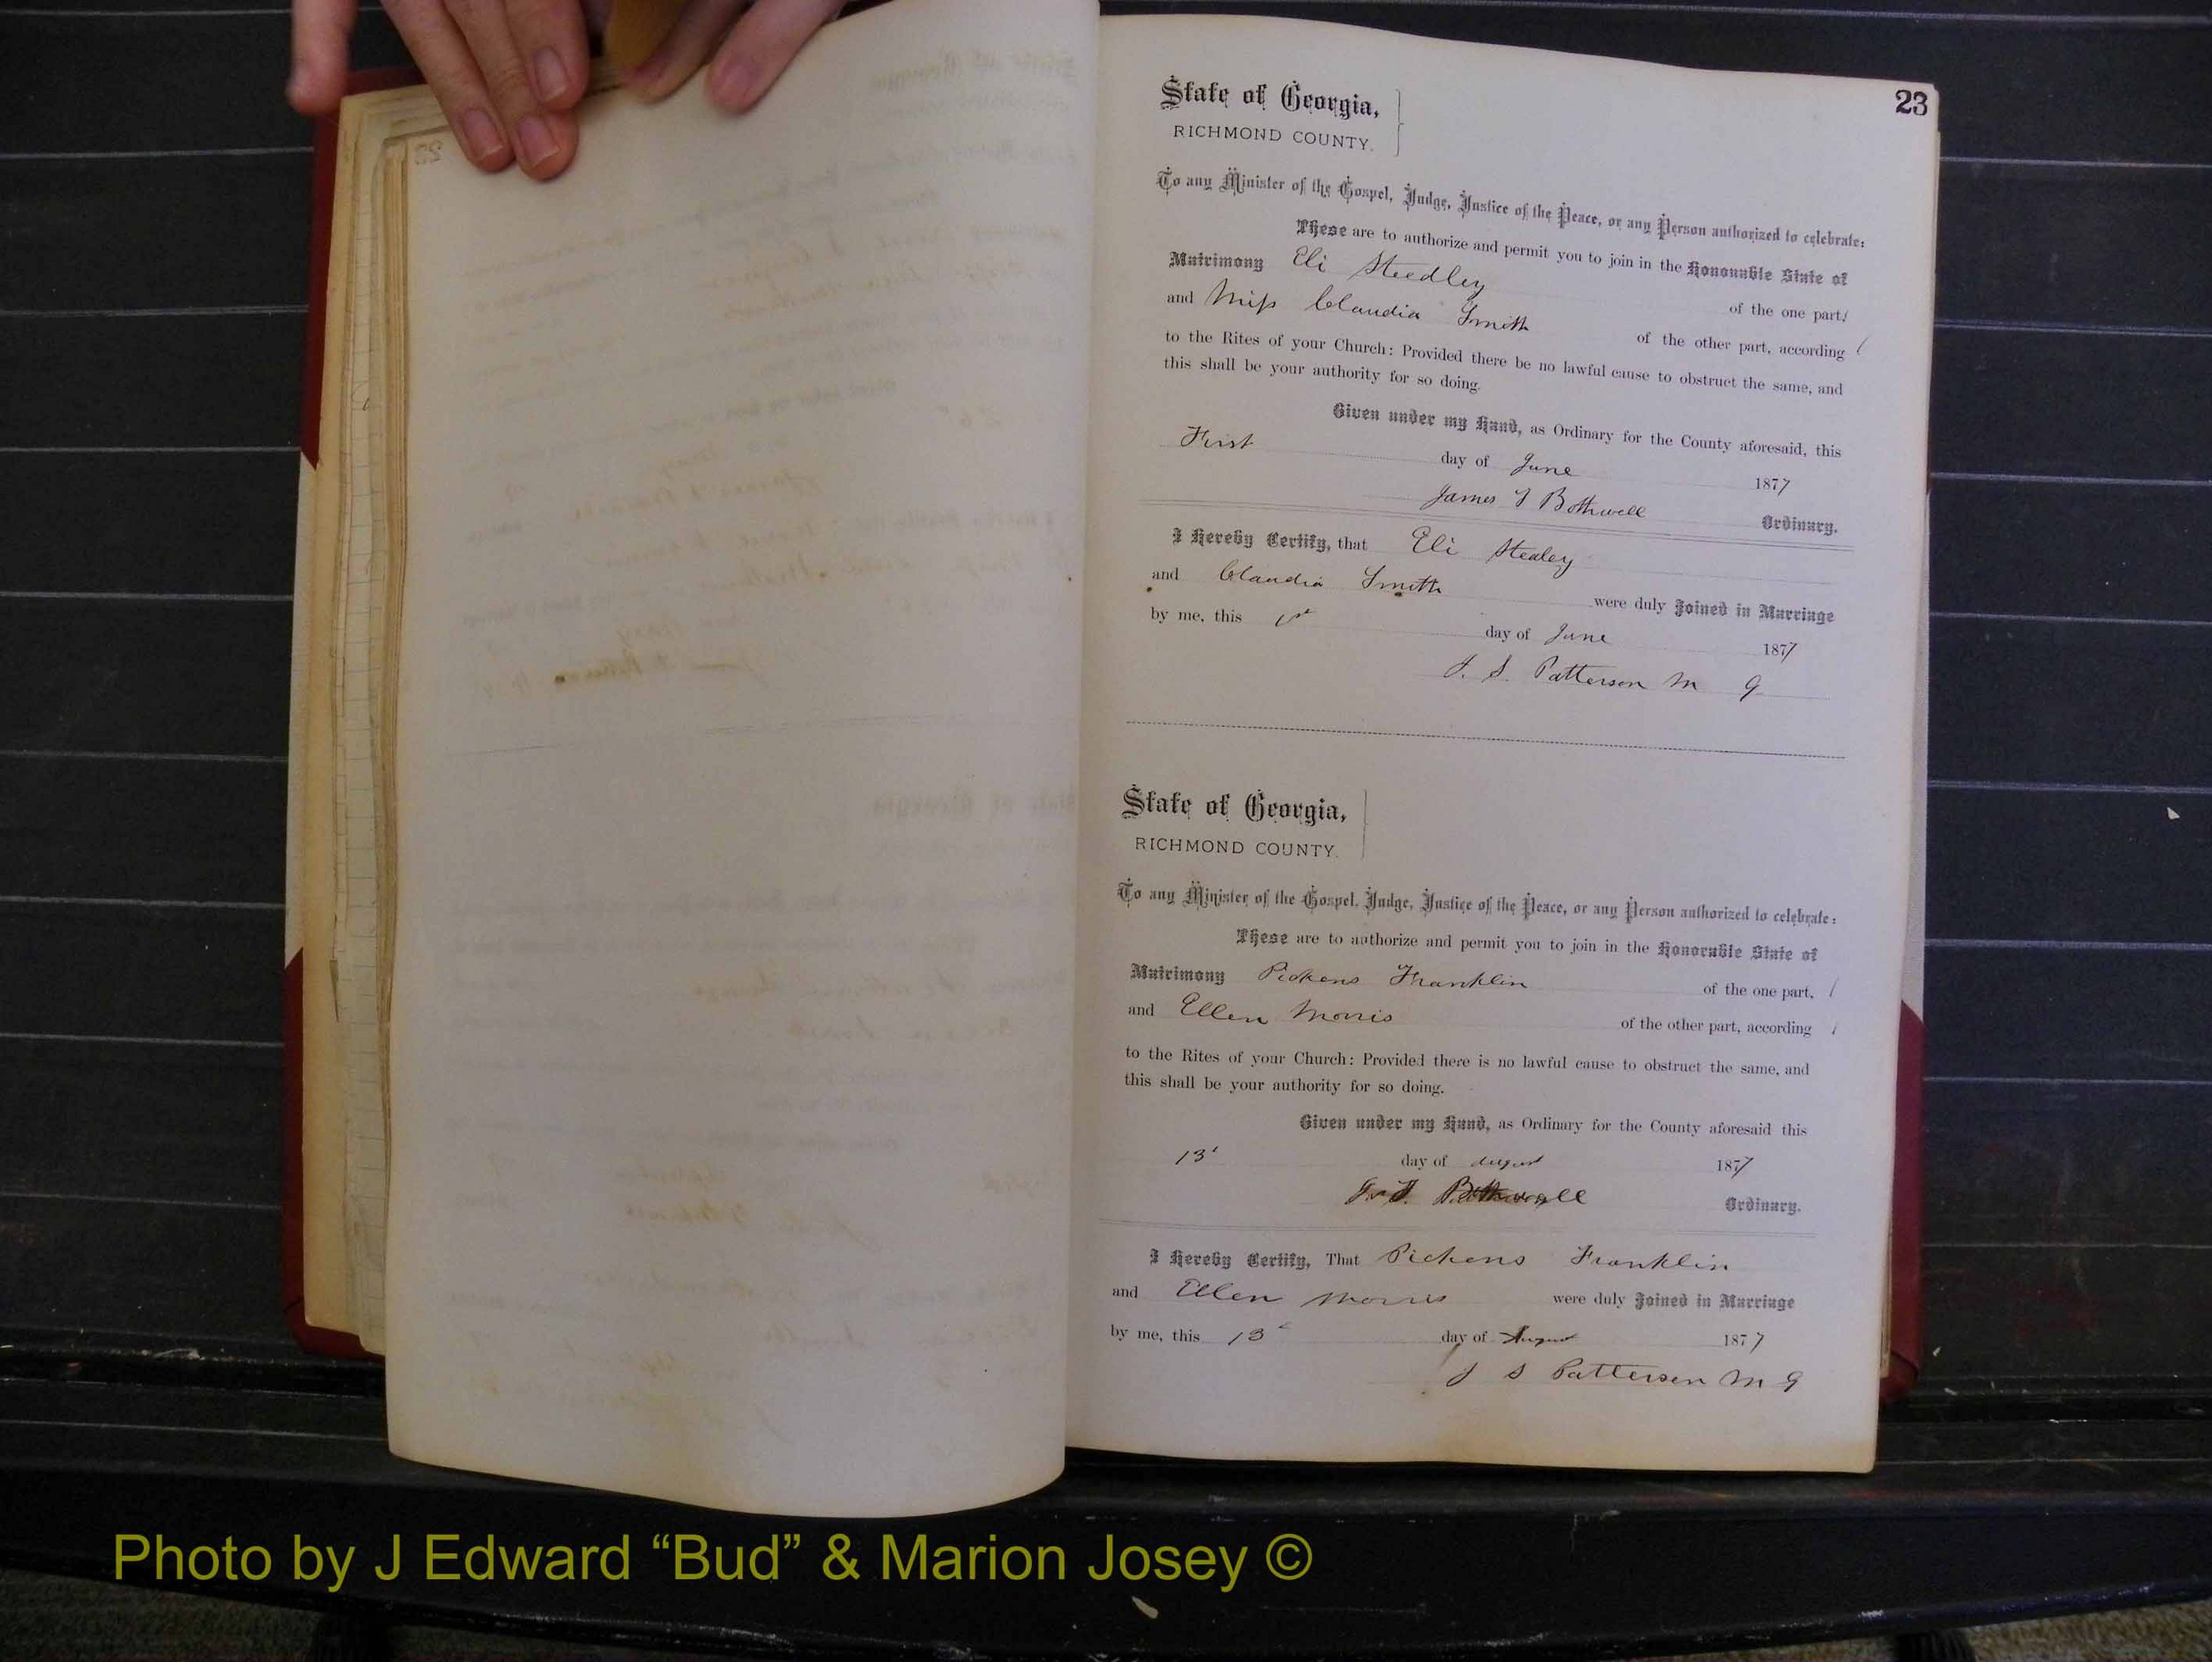 23
State of Georgia,
RICHMOND COUNTY.
To any Minister of the Gospel, Judge, Justice of the Peace, or any Person authorized to celebrate:
These are to authorize and permit you to join in the Honorable State of
Matrimony Eli Steedley of the one part,
and Miss Claudia Smith of the other part, according
to the Rites of your Church: Provided there be no lawful cause to obstruct the same, and
this shall be your authority for so doing.
Given under my Hand, as Ordinary for the County aforesaid, this
First day of June 1877
James T Bothwell Ordinary.
I Hereby Certify, that Eli Stealey
and Claudia Smith were duly Joined in Marriage
by me, this 1st day of June 1877
J. S. Patterson M G
State of Georgia,
RICHMOND COUNTY.
To any Minister of the Gospel, Judge, Justice of the Peace, or any Person authorized to celebrate:
These are to authorize and permit you to join in the Honorable State of
Matrimony Pickens Franklin of the one part,
and Ellen Morris of the other part, according
to the Rites of your Church: Provided there is no lawful cause to obstruct the same, and
this shall be your authority for so doing.
Given under my Hand, as Ordinary for the County aforesaid this
13t day of August 1877
Bothwell Ordinary.
I Hereby Certify, That Pickens Franklin
and Ellen Morris were duly Joined in Marriage
by me, this 13t day of August 1877
J S Patterson M G
Photo by J Edward “Bud” & Marion Josey ©